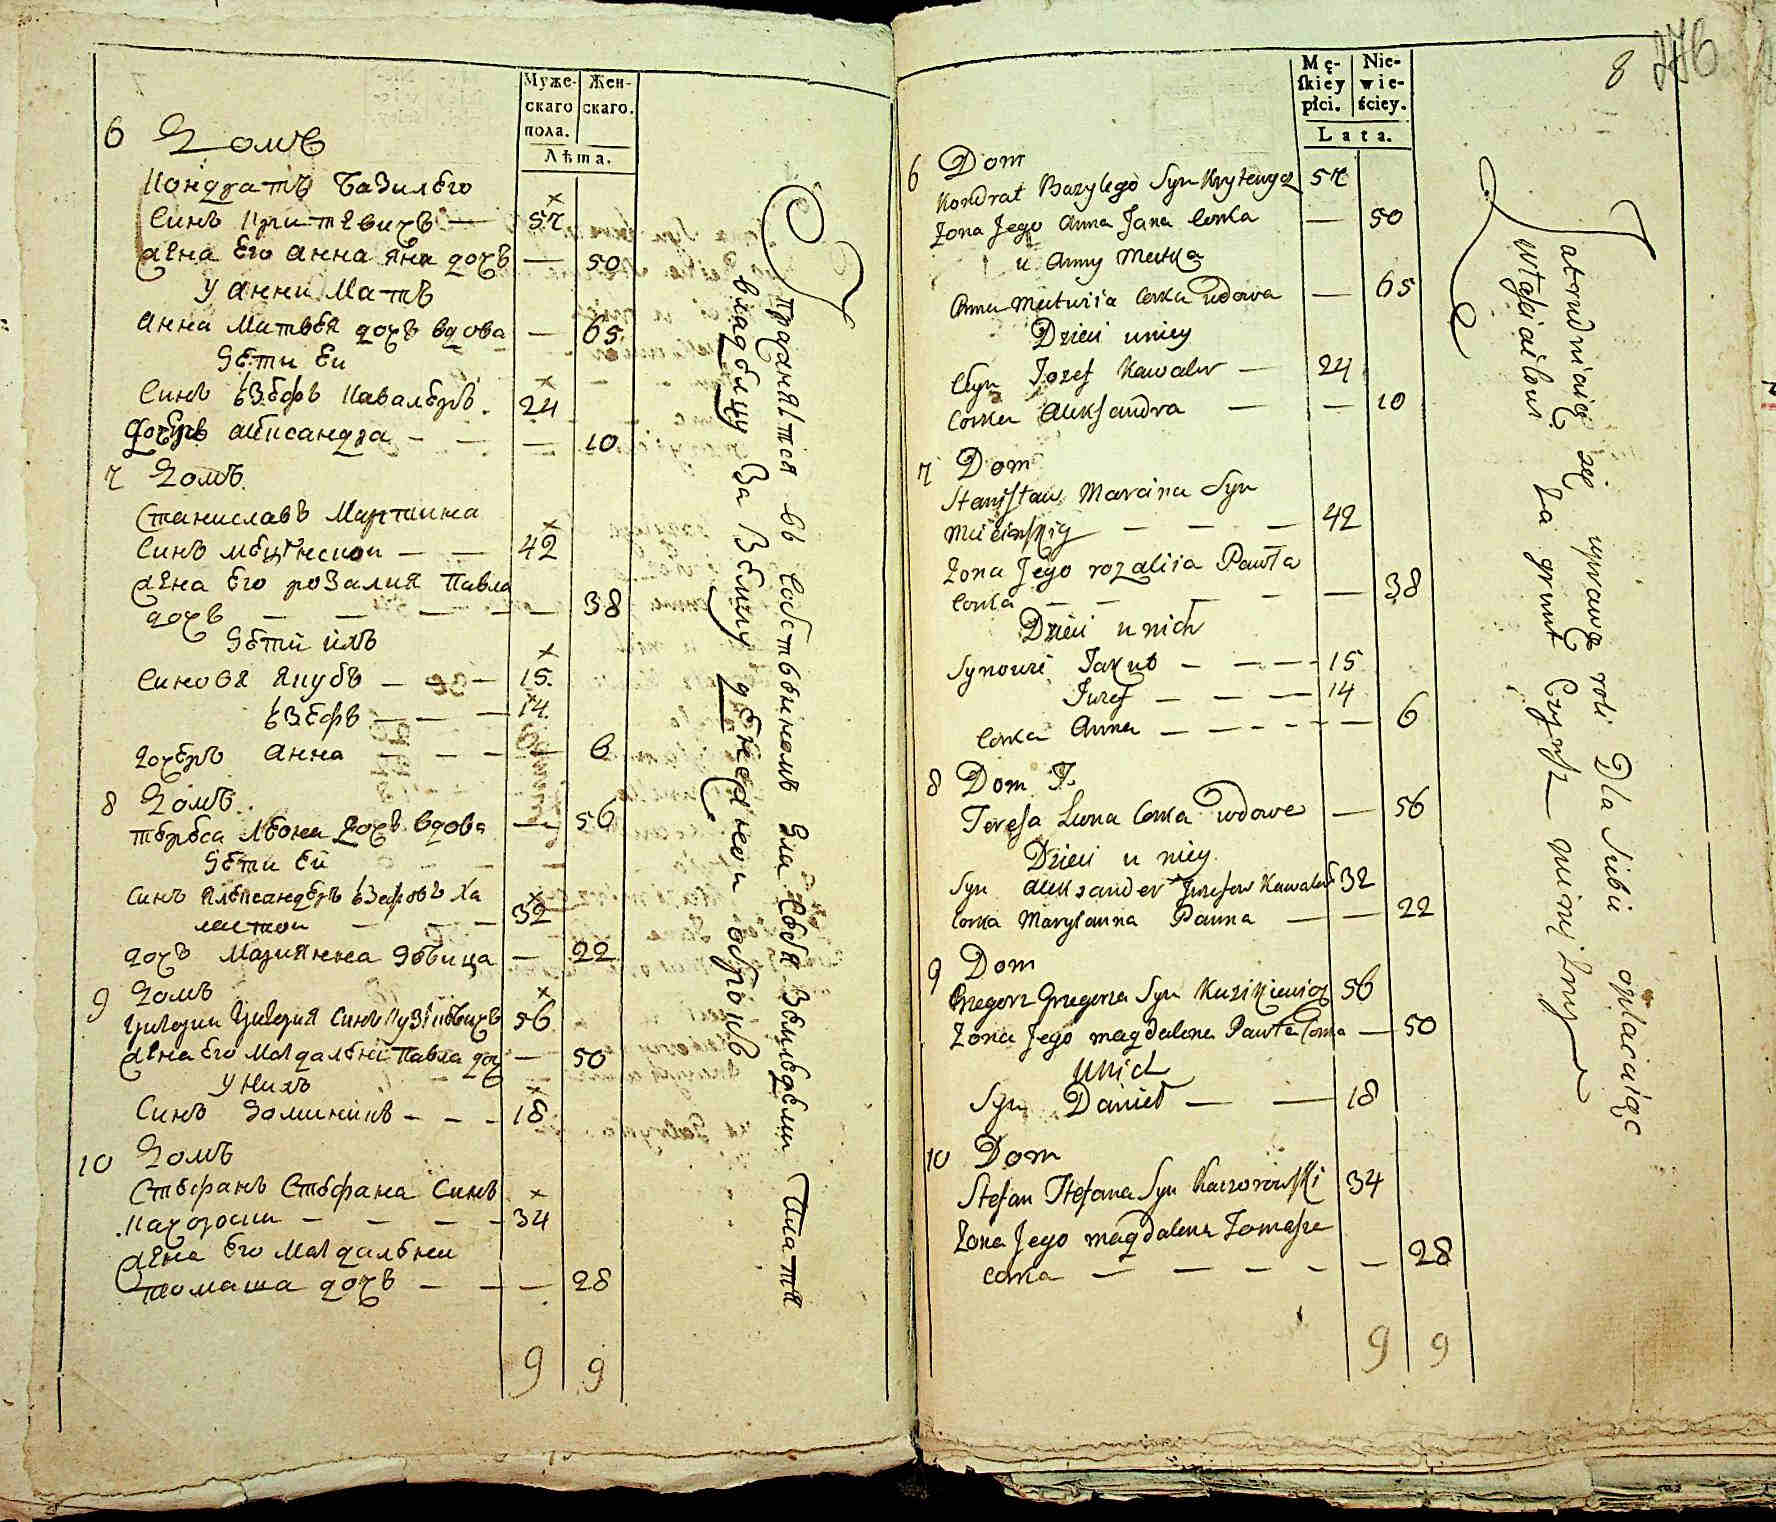 Муже-
скаго
пола.
Жен-
скаго.
Лѣта.
6 Домъ
Кондратъ Базилего
Синъ Критевичъ — 57
Жена Его Анна Яна дочъ — 50
У Анни Матъ
Анна Матвея дочъ вдова — 65
Дети Еи
Синъ Езефъ Кавалеръ. 24
Дочеръ Александра — — — 10
7 Домъ
Станиславъ Мартина
Синъ — — 42
Жена Его розалия Павла
дочъ — — — — 38
Дети ихъ
Синовя Якубъ — — 15.
Езефъ — — — 14
дочеръ Анна — — — 6
8 Домъ.
тереса Леона Дочъ вдова — 56
Дети Еи
Синъ Александеръ Езефовъ Ха
ластои — — — 32
дочъ Мариянна Девица — 22
9 Домъ
Григори Григория Синъ 56
Жена Его Магдалена Павла доч — 50
У Нихъ
Синъ Доминикъ — — — 18
10 Домъ
Стефанъ Стефана Синъ
— — — — 34
Жена Его Магдалена
томаша дочъ — — — 28
9 9
владелцу За Землу денежнои оброкъ
8 276
Mę-
skiey
płci.
Nie-
wie-
ściey.
Lata.
6 Dom
Kondrat Bazylego Syn Krytewicz 57
Zona Jego Anna Jana Corka — 50
u Anny Matka
Anna Matwiia Corka wdowa — 65
Dzieci uniey
Syn Jozef Kawaler — 24
Corka Aleksandra — — 10
7 Dom
Stanisław Marcina Syn
— — — 42
Zona Jego rozaliia Pawła
Corka — — — — — 38
Dzieci unich
Synowie Jakub — — — 15
Juzef — — — 14
Corka Anna — — — — — 6
8 Dom
Teresa Leona Corka wdowa — 56
Dzieci u niey
Syn Aleksander Juzefow Kawaler 32
Corka Maryanna Panna — — 22
9 Dom
Gregorz Gregorza Syn Kuzikiewicz 56
Zona Jego Magdalena Pawła Corka — 50
Unich
Syn Daniel — — 18
10 Dom
Stefan Stefana Syn Kaczorowski 34
Zona Jego Magdalena Tomasza
Corka — — — — — 28
9 9
Zatrudniaią się uprawą roli Dla siebie opłacaiąc
Właścicielowi Za grunt Czynsz